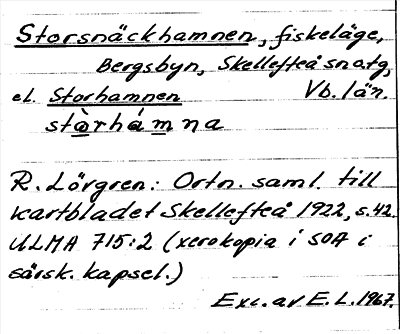 Storsnäckhamnen, fiskeläge,
Bergsbyn, Skellefteå snatg,
el. Storhamnen Vb. län.
stòrhámna
R. Lövgren: Ortn. saml. till
kartbladet Skellefteå 1922, s.42.
ULMA 715:2 (xerokopia i SOA i
särsk. kapsel.)
Exc. av E.L. 1967.